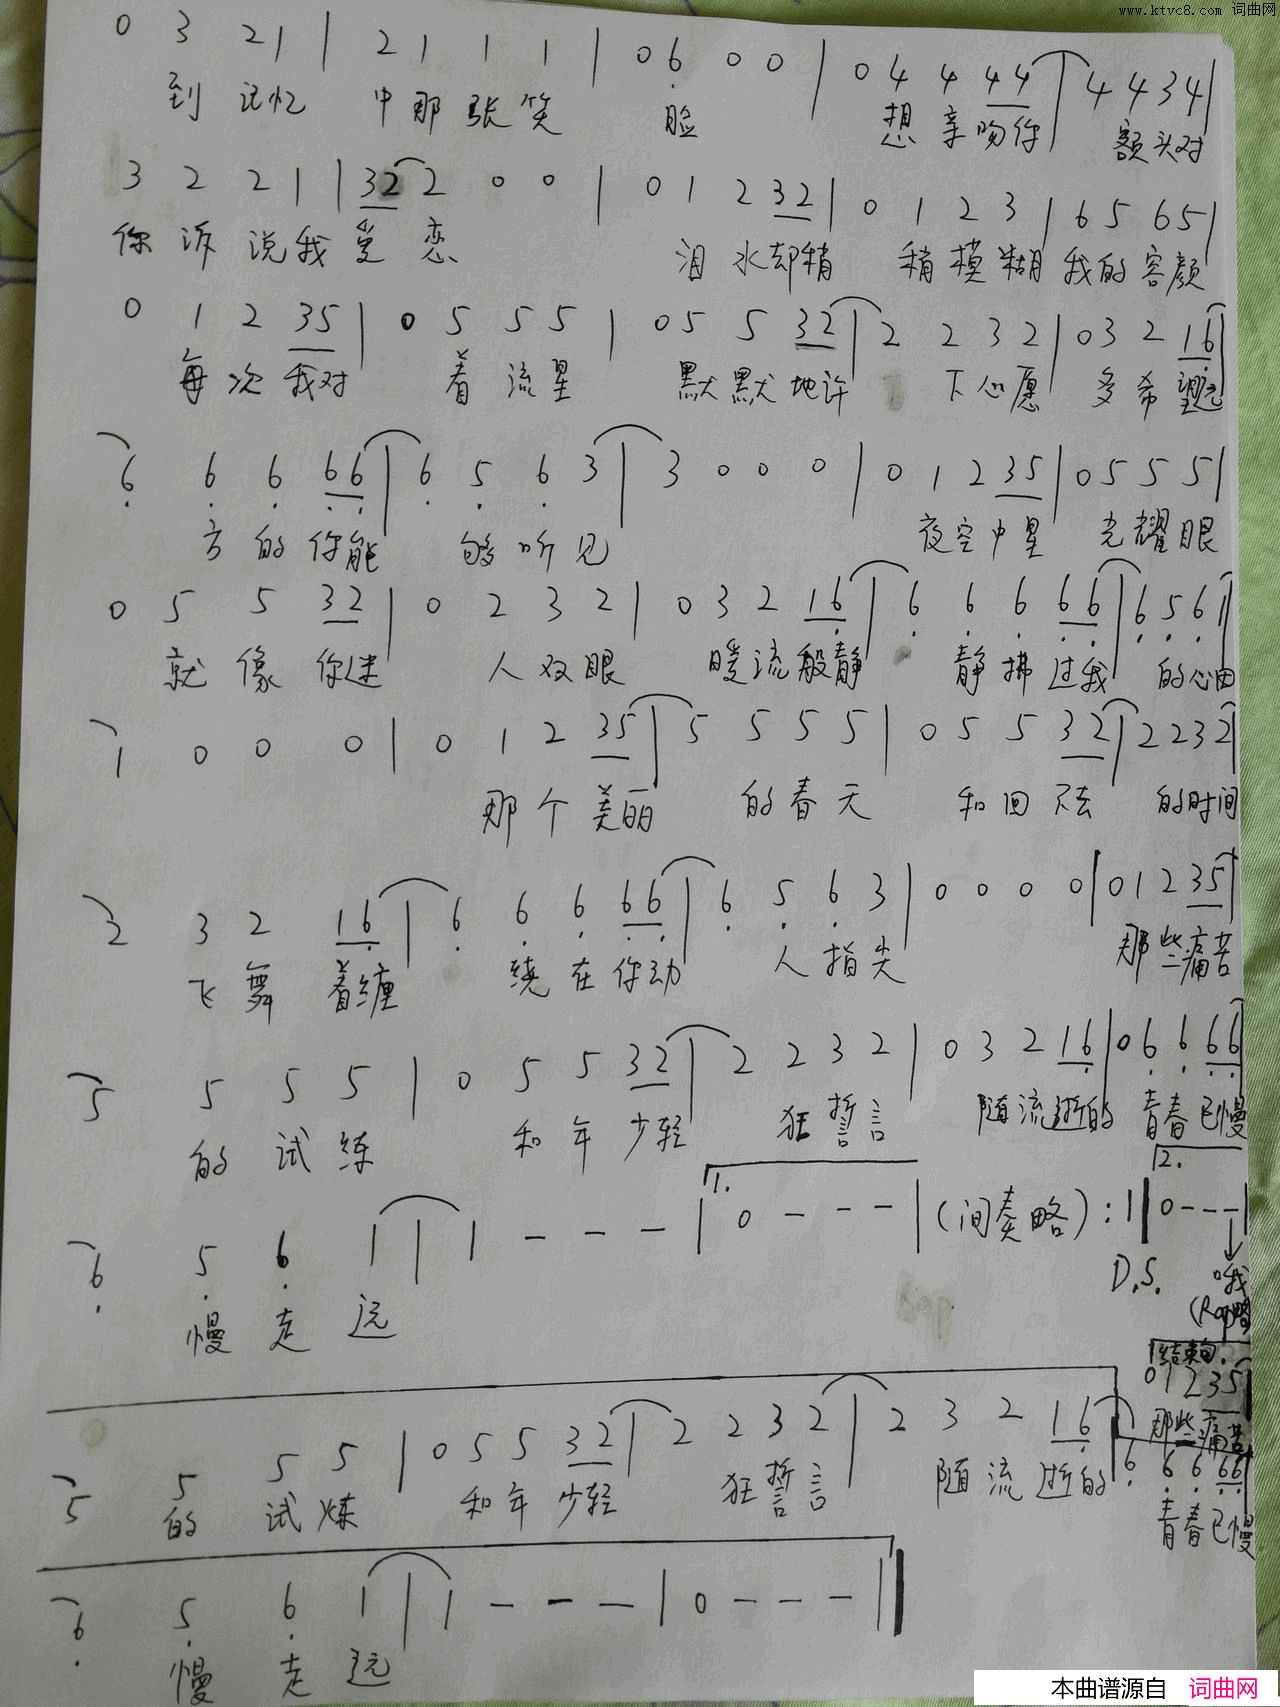 www.ktvc8.com 词曲网
0 3 21 | 2 1 1 1 | 0 6 0 0 | 0 4 4 44 | 4 4 3 4 |
到 记忆 中 那 张 笑 脸 想 亲 吻你 额头对
3 2 2 1 | 32 2 0 0 | 0 1 2 32 | 0 1 2 3 | 6 5 6 5 |
你 诉 说 我 爱 恋 泪 水 却稍 稍 模 糊 我 的 容 颜
0 1 2 35 | 0 5 5 5 | 0 5 5 32 | 2 2 3 2 | 0 3 2 16
每 次 我对 着 流 星 默 默 地许 下 心 愿 多 希 望远
6 6 6 66 | 6 5 6 3 | 3 0 0 0 | 0 1 2 35 | 0 5 5 5 |
方 的 你能 够 听 见 夜 空 中 星 光 耀 眼
0 5 5 32 | 0 2 3 2 | 0 3 2 16 | 6 6 6 66 | 6 5 6 1
就 像 你迷 人 双 眼 暖 流 般静 静 拂 过我 的 心曲
1 0 0 0 | 0 1 2 35 | 5 5 5 5 | 0 5 5 32 | 2 2 3 2
那 个 美丽 的 春 天 和 回 不去 的 时 间
2 3 2 16 | 6 6 6 66 | 6 5 6 3 | 0 0 0 0 | 0 1 2 35
飞 舞 着缠 绕 在 你动 人 指 尖 那 些 痛苦
5 5 5 5 | 0 5 5 32 | 2 2 3 2 | 0 3 2 16 | 0 6 6 66
的 试 练 和 年 少轻 狂 誓 言 随 流 逝的 青 春 已慢
1. 2.
6 5 6 1 | 1 - - - | 0 - - - | (间奏略) :‖ 0 - - - |
慢 走 远 D.S. 哦
(Rap略)
结束句.
0 1 2 35
那 些 痛苦
5 5 5 5 | 0 5 5 32 | 2 2 3 2 | 2 3 2 16 | 6 6 6 66
的 试 炼 和 年 少轻 狂 誓 言 随 流 逝的 青 春 已慢
6 5 6 1 | 1 - - - | 0 - - - ‖
慢 走 远
本曲谱源自 词曲网